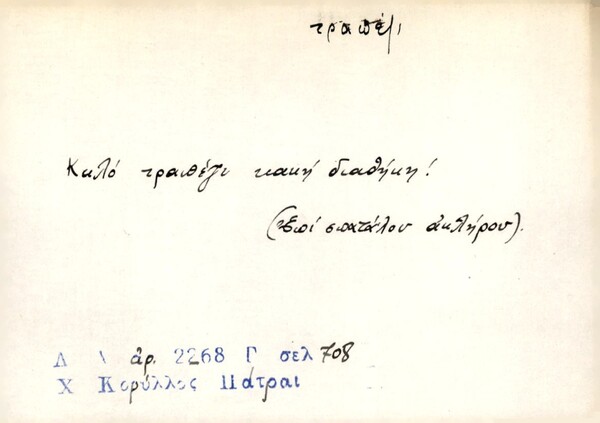 τραπέζι
Καλό τραπέζι κακή διαθήκη!
(Ἐπί σπατάλου ἀκλήρου).
Λ Α ἀρ. 2268 Γ σελ 708
Χ Κορύλλος Πάτραι